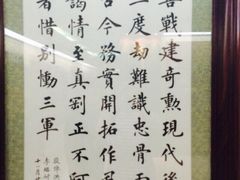 善戰建奇勳現代後
二度劫難識忠骨
古今務實開拓作
情至真剛正不阿
者惜別慟三軍
十一月